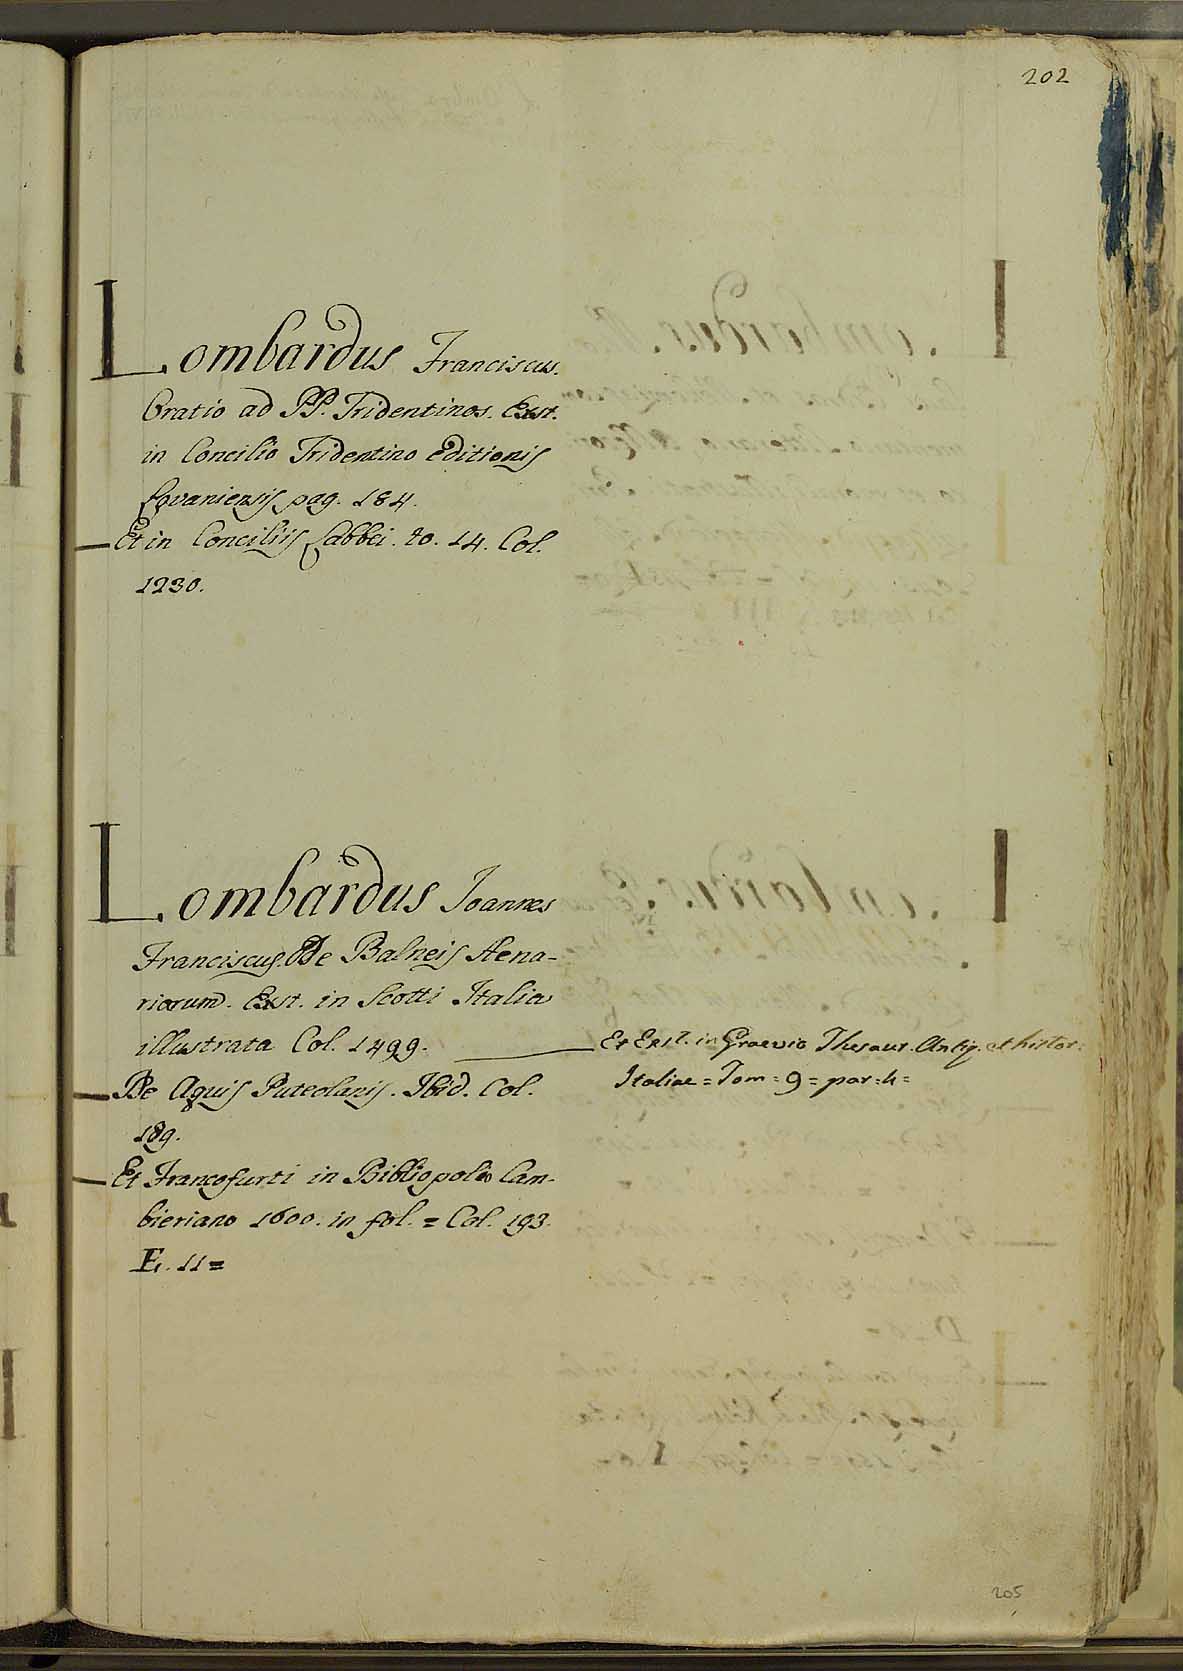 202
Lombardus Franciscus.
Oratio ad PP. Tridentinos. Exst.
in Concilio Tridentino editionis
Lovaniensis pag. 184.
Et in Conciliis Labbei. to. 14. Col.
1230.
Lombardus Joannes
Franciscus. De Balneis Aena-
riorum. Exst. in Scotti Italia
illustrata Col. 1499.
Et Exst. in Graevio Thesaur. Antiq. et histor:
Italiae = Tom = 9 = par: 4 =
De Aquis Puteolanis. Ibid. Col.
189.
Et Francofurti in Bibliopolio Cam-
bieriano 1600. in fol. = Col. 193.
E. 11 =
205